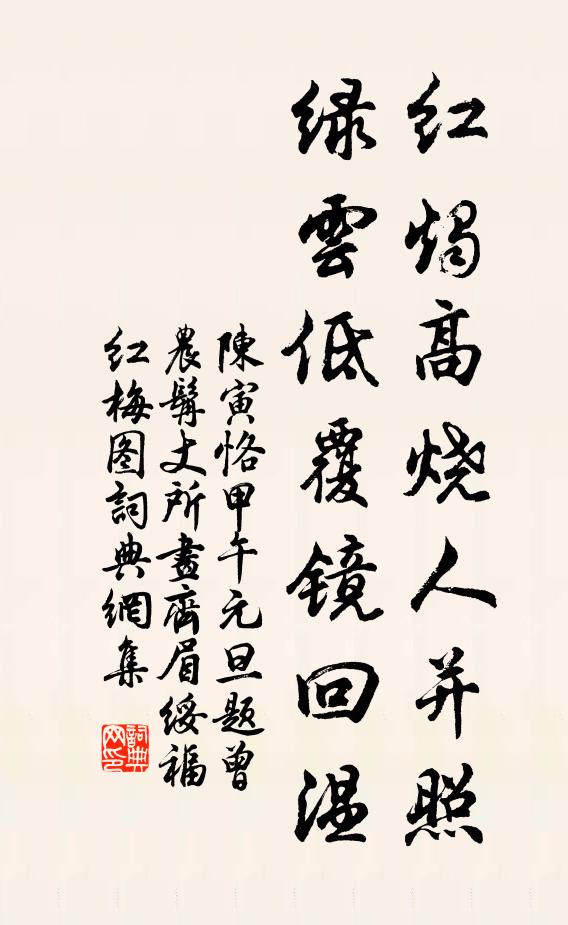 红燭高烧人并照
绿雲低覆镜回温
陳寅恪甲午元旦题曾
農髯丈所畫齊眉綏福
红梅图詞典網集
詞典网印